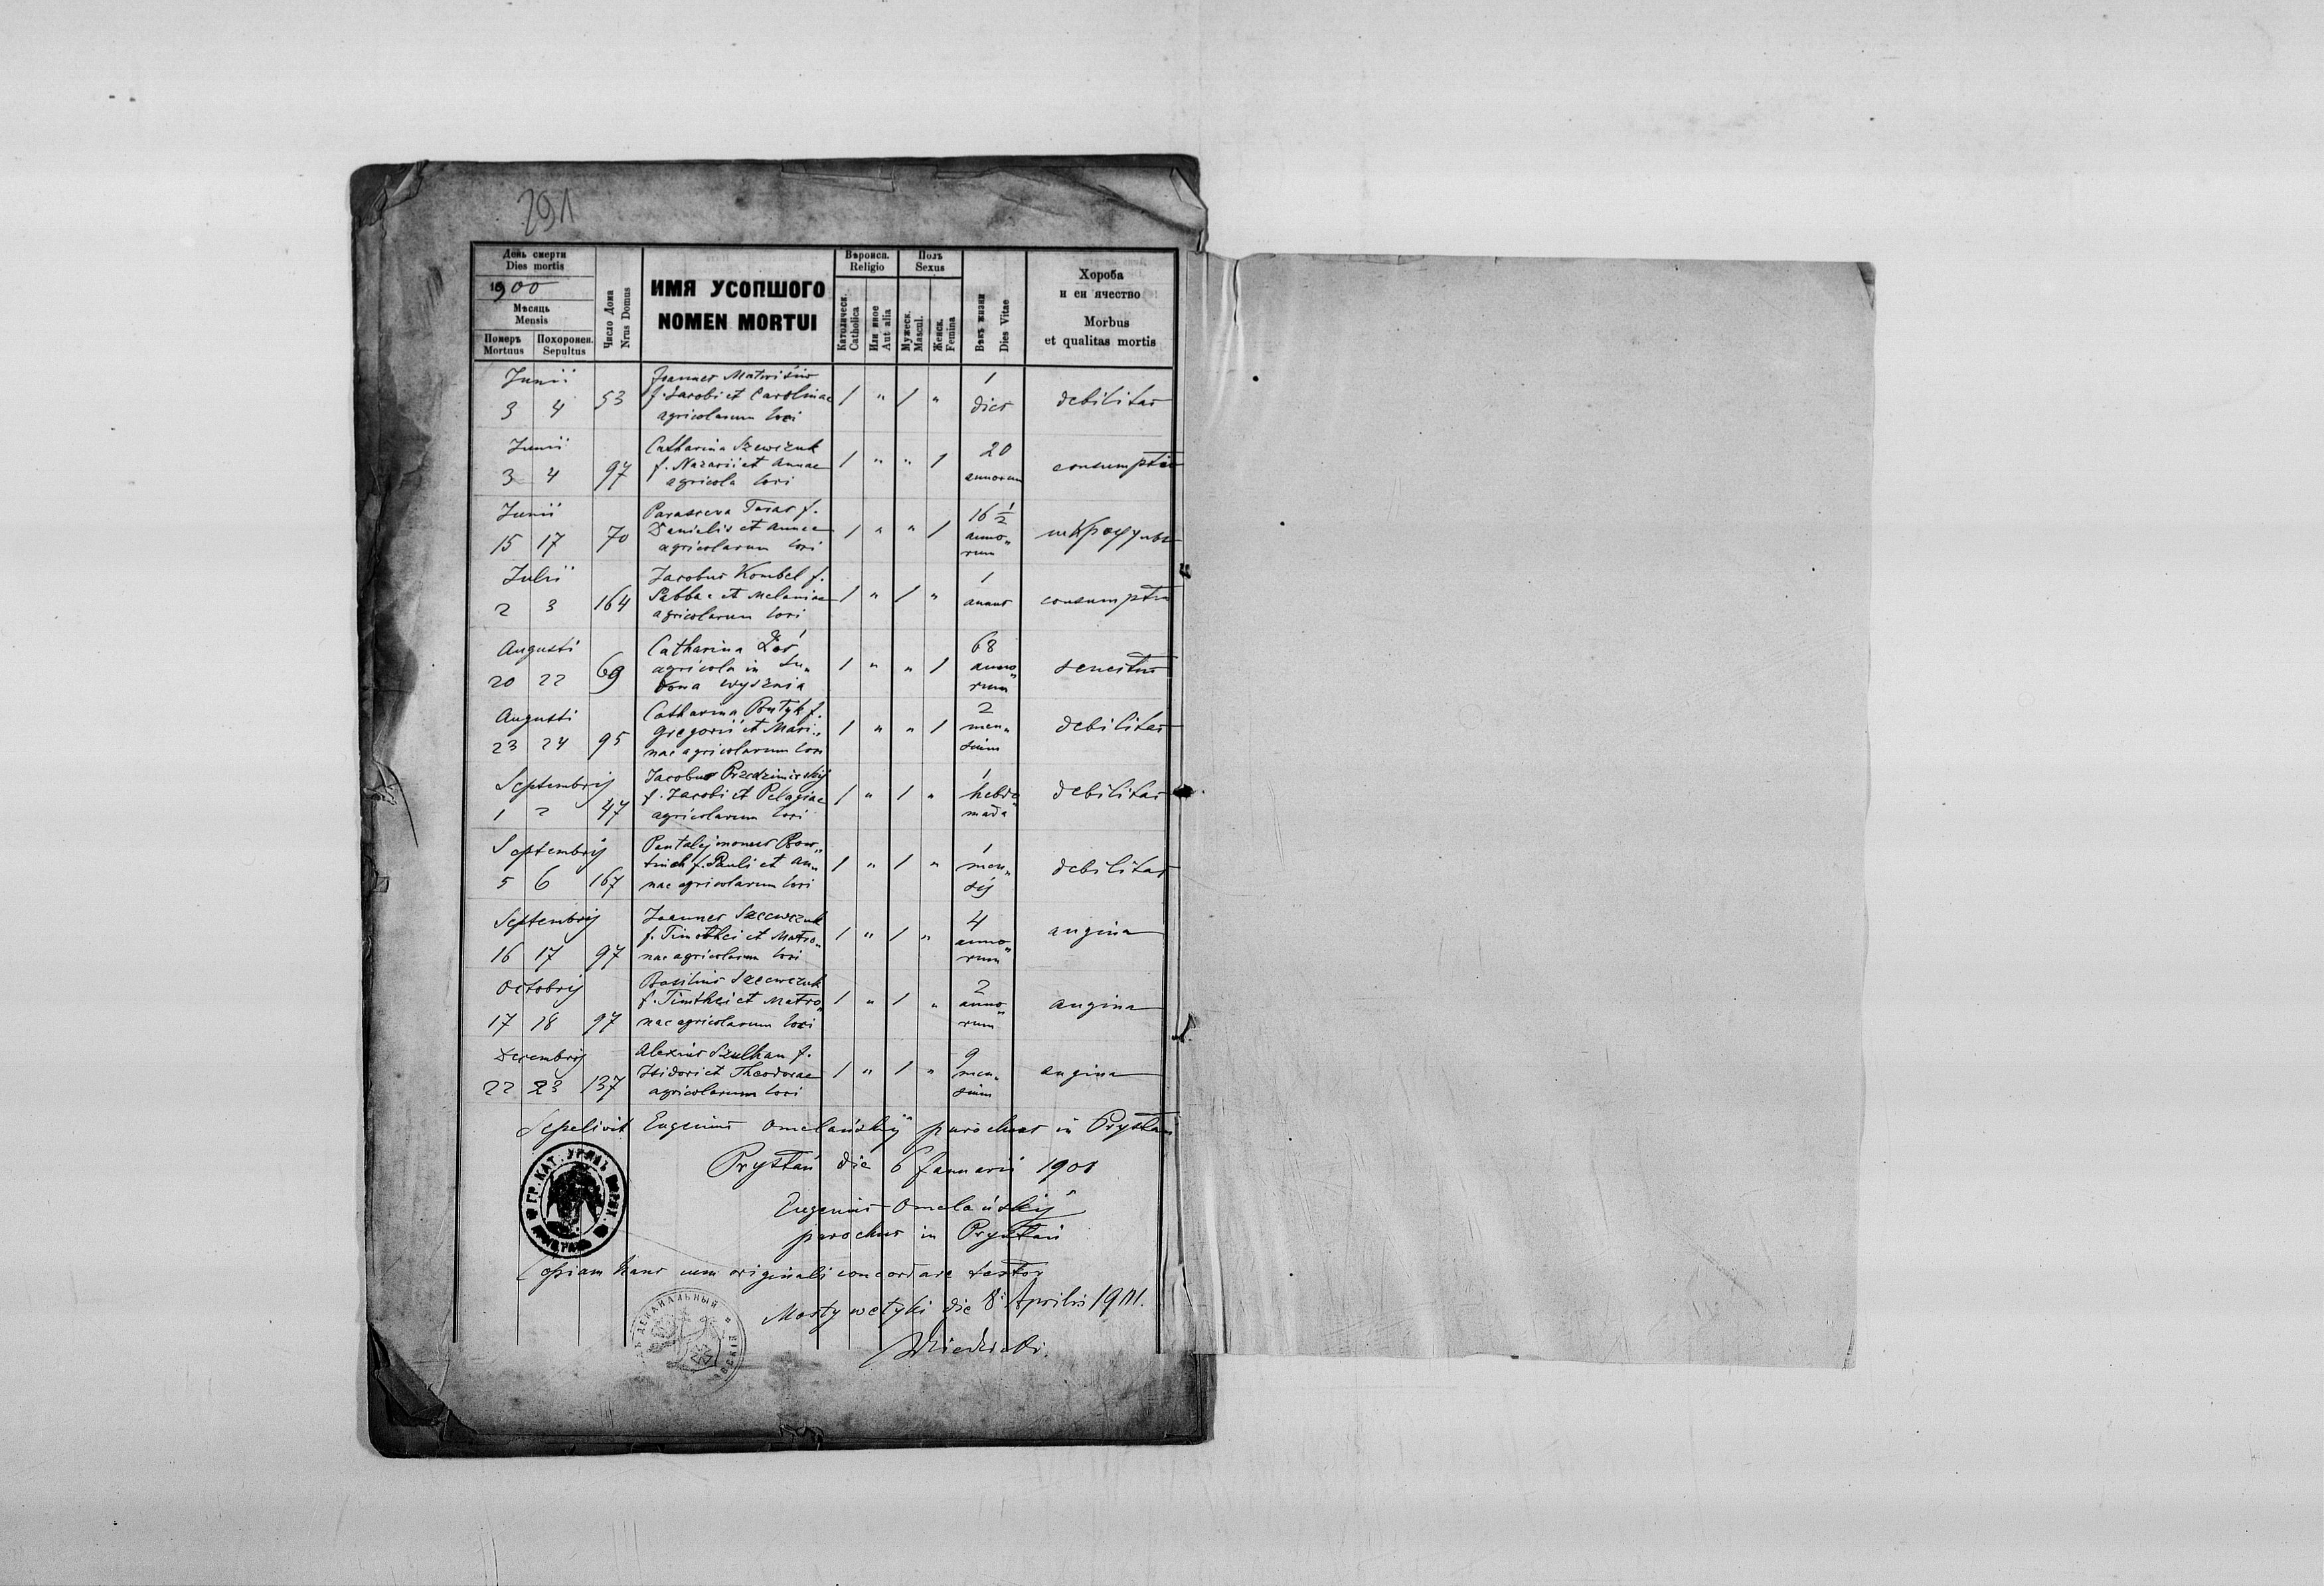 291
День смерти
Dies mortis
1900
Мѣсяць
Mensis
Померъ
Mortuus
Похоронен.
Sepultus
Число Дома
Nrus Domus
ИМЯ УСОПШОГО
NOMEN MORTUI
Вѣроисп.
Religio
Католическ.
Catholica
Или иное
Aut alia
Полъ
Sexus
Мужеск.
Mascul.
Женск.
Femina
Вѣкъ жизни
Dies Vitae
Хороба
и еи ячество
Morbus
et qualitas mortis
Junii
3 4 53
Joannes
f. Jacobi et Carolinae
agricolarum loci
1 " 1 "
1
dies
debilitas
Junii
3 4 97
Catharina Szewczuk
f. Nazarii et Annae
agricola loci
1 " " 1
20
annorum
consumptio
Junii
15 17 70
Parasceva Taras f.
Danielis et Annae
agricolarum loci
1 " " 1
16 1/2
anno„
rum
Julii
2 3 164
Jacobus Kombel f.
Sabbae et Melaniae
agricolarum loci
1 " 1 "
1
annus
consumptio
Augusti
20 22 69
Catharina
agricola in
wyżnia
1 " " 1
68
anno„
rum
Augusti
23 24 95
Catharina f.
Gregorii et Mari„
nae agricolarum loci
1 " " 1
2
men„
sium
debilitas
Septembrij
1 2 47
Jacobus Przedzimirskij
f. Jacobi et Pelagiae
agricolarum loci
1 " 1 "
1
hebdo„
mada
debilitas
Septembrij
5 6 167
Pantalejmonus
f. Pauli et An„
nae agricolarum loci
1 " 1 "
1
men„
sij
debilitas
Septembrij
16 17 97
Joannes Szewczuk
f. Timothei et Matro„
nae agricolarum loci
1 " 1 "
4
anno„
rum
angina
Octobrij
17 18 97
Basilius Szewczuk
f. Timthei et Matro„
nae agricolarum loci
1 " 1 "
2
anno„
rum
angina
Decembrij
22 23 137
Alexius Szulhan f.
Isidori et Theodorae
agricolarum loci
1 " 1 "
9
men„
sium
angina
Sepelivit Eugenius Omelańskij parochus in Prystań
Prystań die 6 Januarii 1901
Eugenius Omelańskij
parochus in Prystań
ГР. КАТ. УРЯДЪ ПАРОХ.
Copiam hanc cum originali concordare testor
Mosty wełyki die 8 Aprilis 1901.
ДЕКАНАЛЬНЫЙ